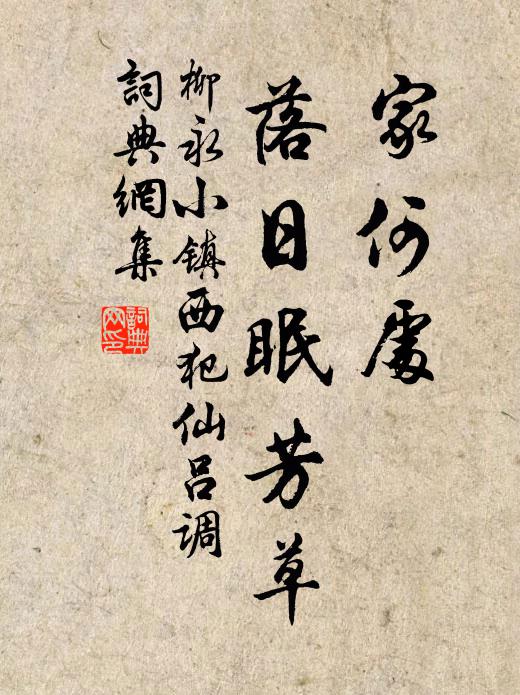 家何處
落日眠芳草
柳永小鎮西犯仙吕调
詞典網集
詞典
网印